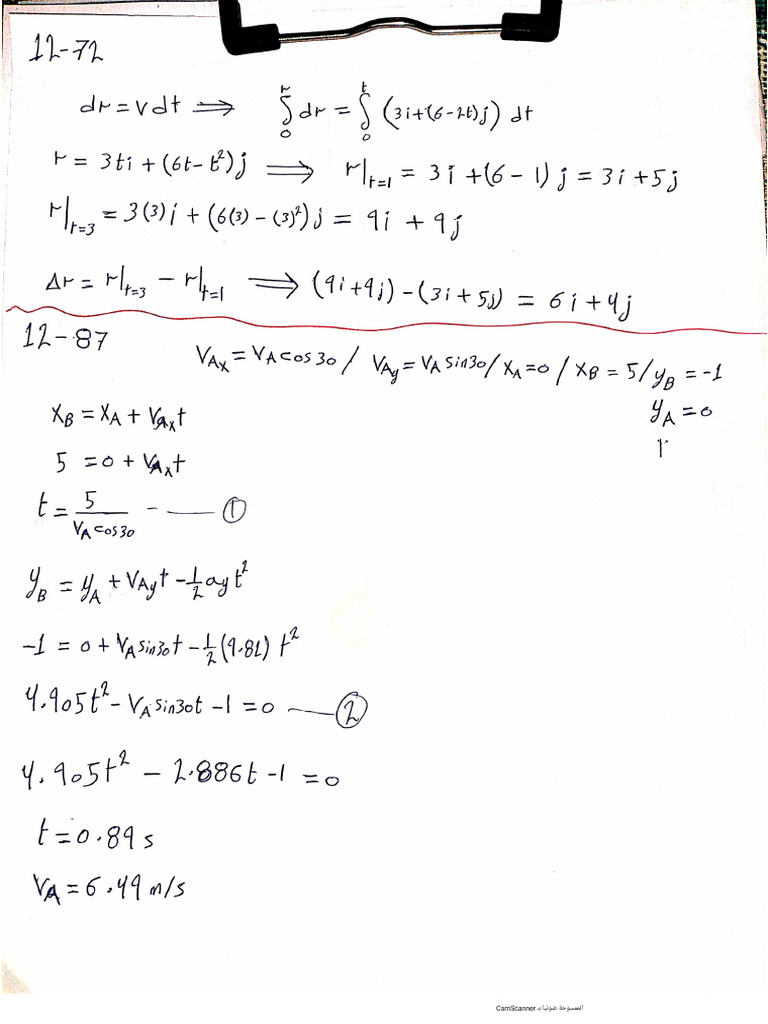 12-72
dr = v dt ⟹ ∫₀ʳ dr = ∫₀ᵗ (3i+(6-2t)j) dt
r = 3ti + (6t - t²)j ⟹ r|t=1 = 3i + (6 - 1)j = 3i + 5j
r|t=3 = 3(3)i + (6(3) - (3)²)j = 9i + 9j
Δr = r|t=3 - r|t=1 ⟹ (9i+9j) - (3i+5j) = 6i + 4j
12-87
VAx = VA cos30 / VAy = VA sin30 / xA = 0 / xB = 5 / yB = -1
yA = 0
xB = xA + VAx t
5 = 0 + VAx t
t = 5 / VA cos30 ----- ①
yB = yA + VAy t - 1/2 ay t²
-1 = 0 + VA sin30 t - 1/2 (9.81) t²
4.905t² - VA sin30t - 1 = 0 ----- ②
4.905t² - 2.886t - 1 = 0
t = 0.89 s
VA = 6.49 m/s
الممسوحة ضوئيا بـ CamScanner